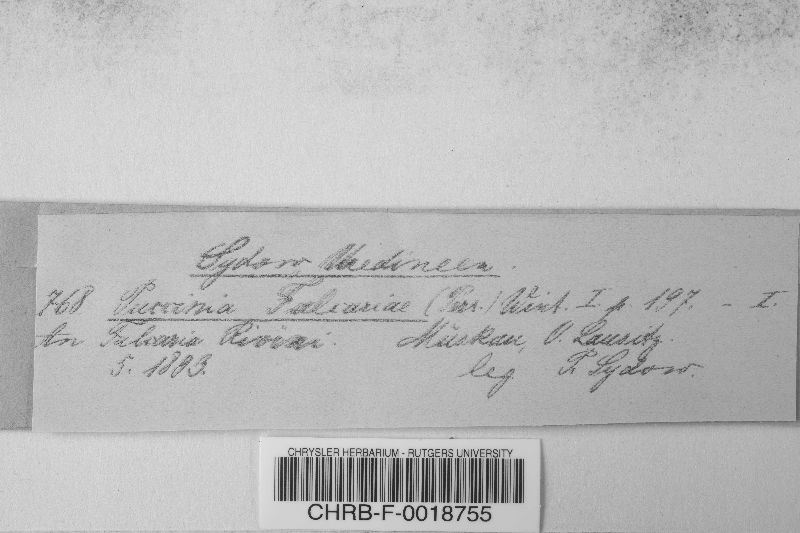 Sydow Uredineen.
768 Puccinia Falcariae (Per.) Wint. I p 197. - I.
An Falcaria Rivini. Muskau, O. Lausitz.
5. 1893. leg. P. Sydow.
CHRYSLER HERBARIUM - RUTGERS UNIVERSITY
CHRB-F-0018755